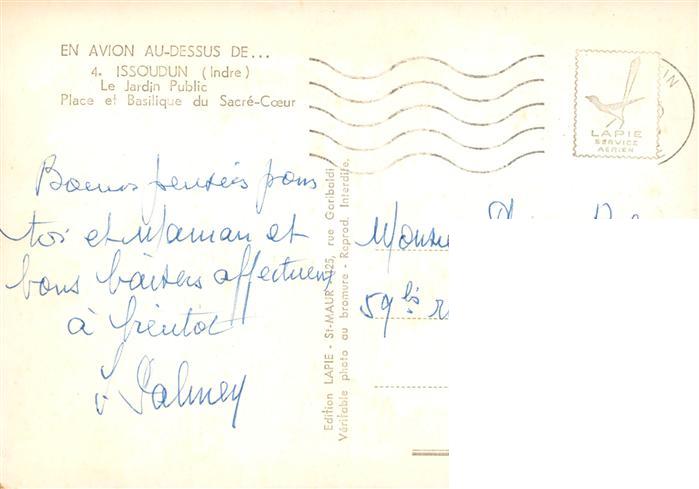 EN AVION AU-DESSUS DE...
4. ISSOUDUN (Indre)
Le Jardin Public
Place et Basilique du Sacré-Cœur
LAPIE
SERVICE
AERIEN
IN
Bonnes pensées pour
toi et Maman et
bons baisers affectueux
à bientôt
Edition LAPIE - St-MAUR 125, rue Garibaldi
Véritable photo au bromure - Reprod. Interdite.
59 bis